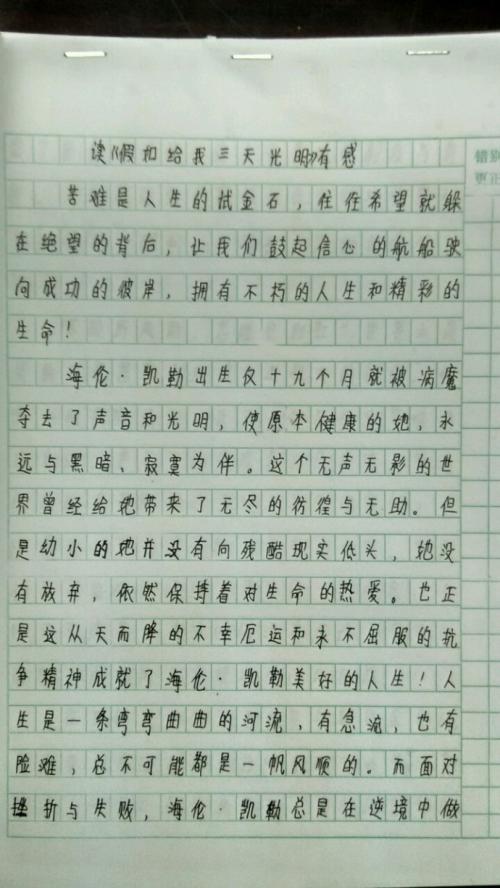 读《假如给我三天光明》有感
苦难是人生的试金石，往往希望就躲
在绝望的背后，让我们鼓起信心的航船驶
向成功的彼岸，拥有不朽的人生和精彩的
生命！
海伦·凯勒出生仅十九个月就被病魔
夺去了声音和光明，使原本健康的她，永
远与黑暗、寂寞为伴。这个无声无影的世
界曾经给她带来了无尽的彷徨与无助。但
是幼小的她并没有向残酷现实低头，她没
有放弃，依然保持着对生命的热爱。也正
是这从天而降的不幸厄运和永不屈服的抗
争精神成就了海伦·凯勒美好的人生！人
生是一条弯弯曲曲的河流，有急流，也有
脸滩，总不可能都是一帆风顺的。而面对
挫折与失败，海伦·凯勒总是在逆境中做
错别
更正